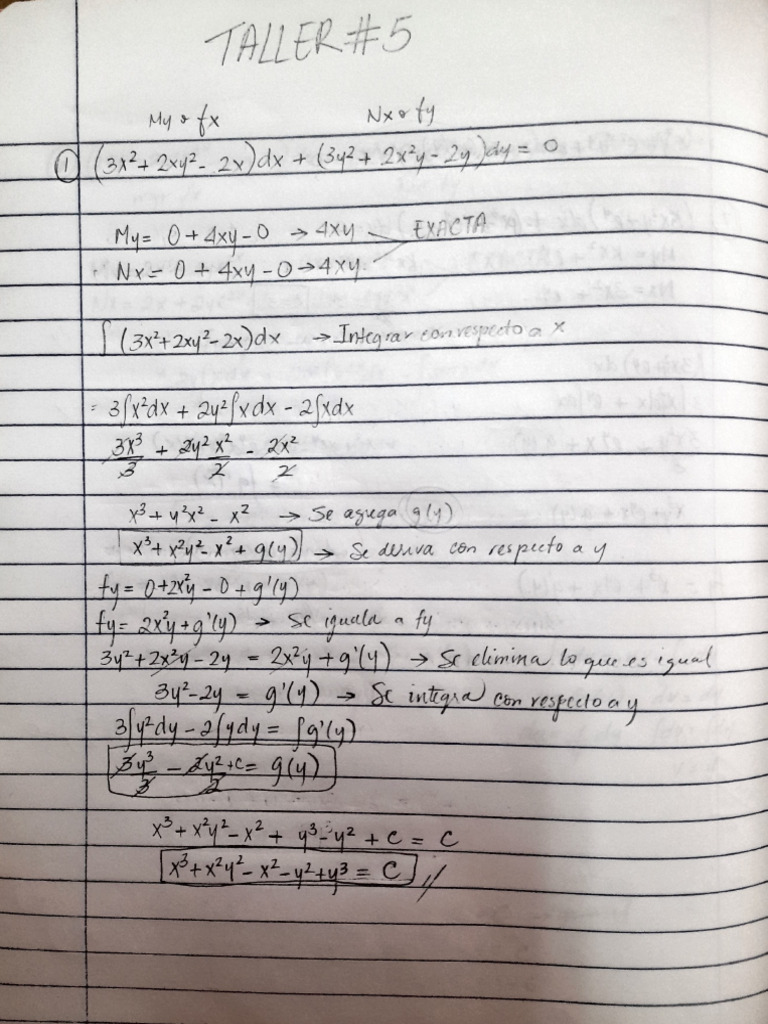 TALLER #5
My o fx Nx o fy
① (3x² + 2xy² - 2x)dx + (3y² + 2x²y - 2y)dy = 0
My = 0 + 4xy - 0 → 4xy EXACTA
Nx = 0 + 4xy - 0 → 4xy
∫ (3x² + 2xy² - 2x)dx → Integrar con respecto a x
= 3∫x²dx + 2y²∫xdx - 2∫xdx
3x³/3 + 2y²x²/2 - 2x²/2
x³ + y²x² - x² → Se agrega g(y)
x³ + x²y² - x² + g(y) → Se deriva con respecto a y
fy = 0 + 2x²y - 0 + g'(y)
fy = 2x²y + g'(y) → Se iguala a fy
3y² + 2x²y - 2y = 2x²y + g'(y) → Se elimina lo que es igual
3y² - 2y = g'(y) → Se integra con respecto a y
3∫y²dy - 2∫ydy = ∫g'(y)
3y³/3 - 2y²/2 + c = g(y)
x³ + x²y² - x² + y³ - y² + C = C
x³ + x²y² - x² - y² + y³ = C //